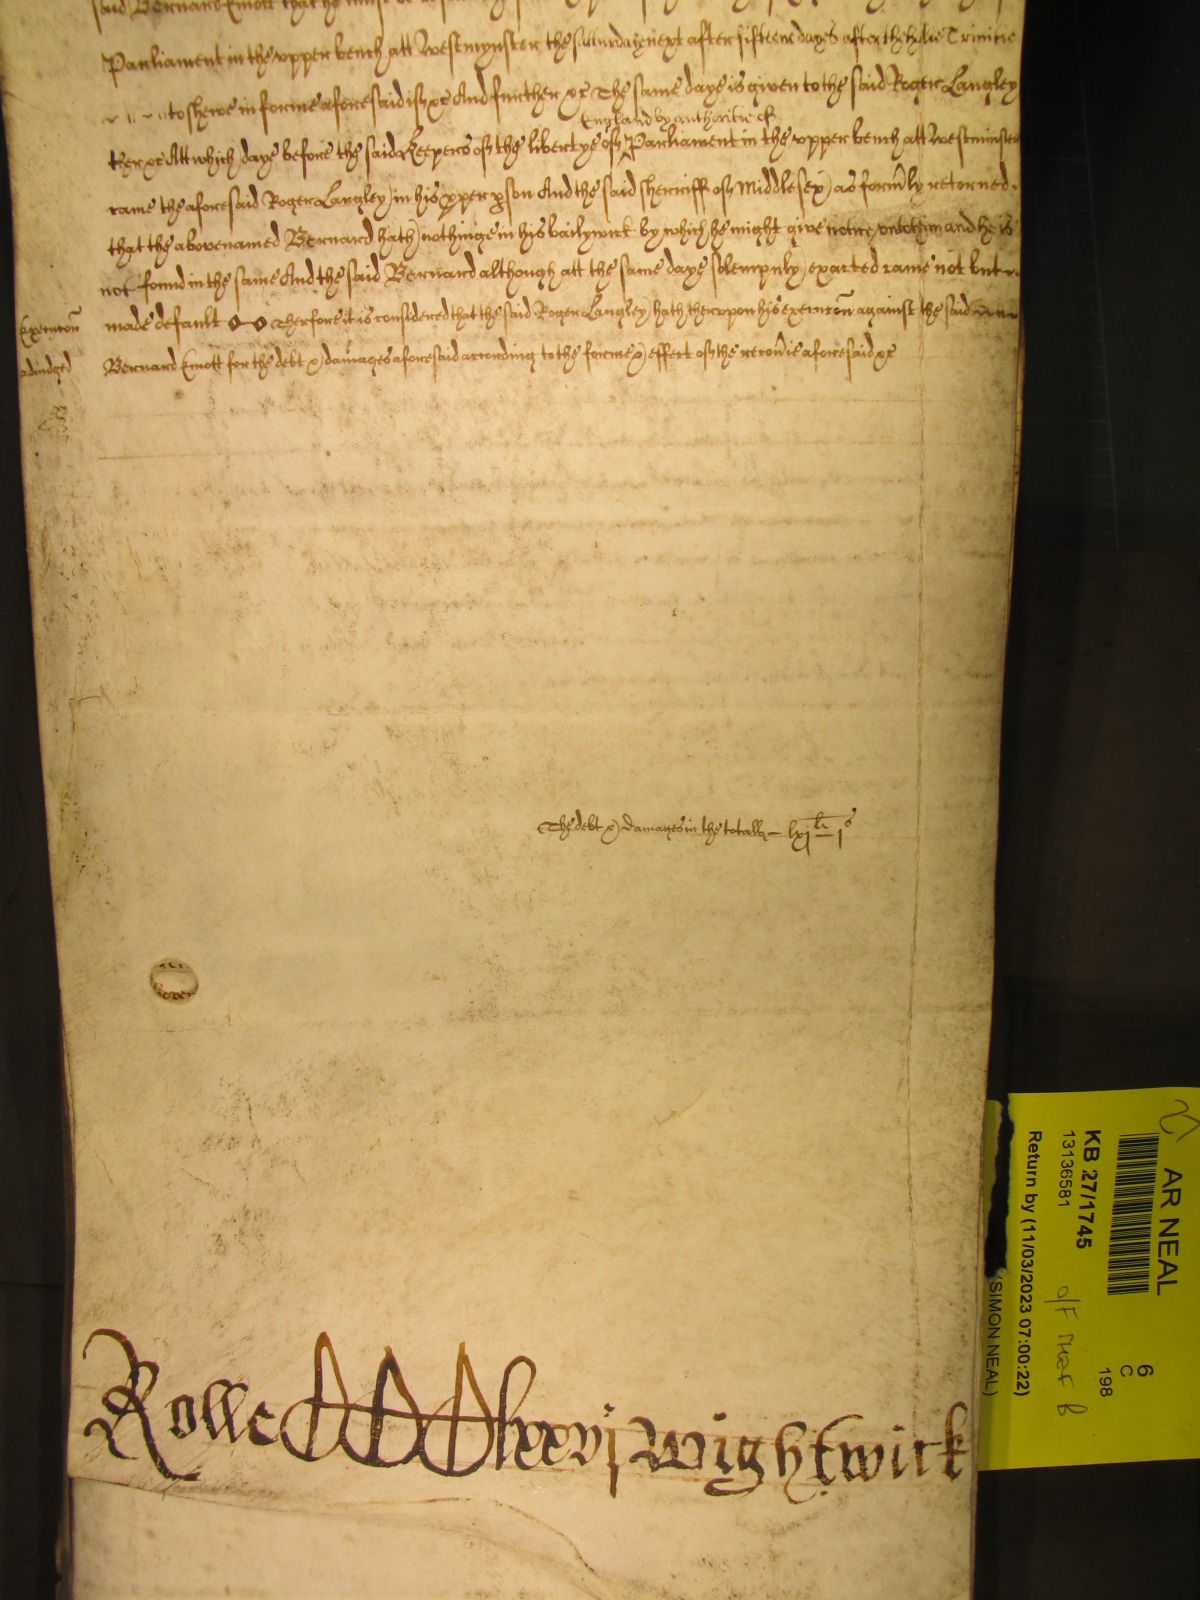 said Bernard Emott that he
Parliament in the upper bench att Westmynster the satturday next after fifteene dayes after the holie Trinitie
to shewe in forme aforesaid if &c And further &c The same daye is given to the said Roger Langley
England by authoritie of
ther &c Att which daye before the said Keepers of the libertye of Parliament in the upper bench att Westminster
came the aforesaid Roger Langley in his pper pson And the said sherriff of Middlesex as formly retorned
that the abovenamed Bernard hath nothinge in his bailywick by which he might give notice unto him and he is
not found in the same And the said Bernard although att the same daye solempnly exacted came not but
made default Therfore it is considered that the said Roger Langley hath therupon his execucon against the said
Bernard Emott for the debt & damages aforesaid according to the forme & effect of the recoverie aforesaid &c
Execucon
adiudged
The debt & damages in the totall – lxj li j s
Rolle CCCClxxvj Wightwick
AR NEAL
KB 27/1745
13136581
Return by (11/03/2023 07:00:22)
(SIMON NEAL)
6
C
198